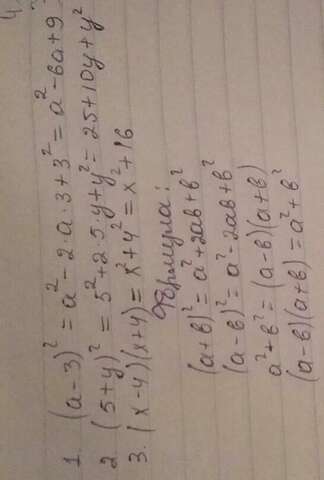 1. (a-3)² = a²-2·a·3+3² = a²-6a+9
2. (5+y)² = 5²+2·5·y+y² = 25+10y+y²
3. (x-4)(x+4) = x²+4² = x²+16
Формула:
(a+b)² = a²+2ab+b²
(a-b)² = a²-2ab+b²
a²+b² = (a-b)(a+b)
(a-b)(a+b) = a²+b²